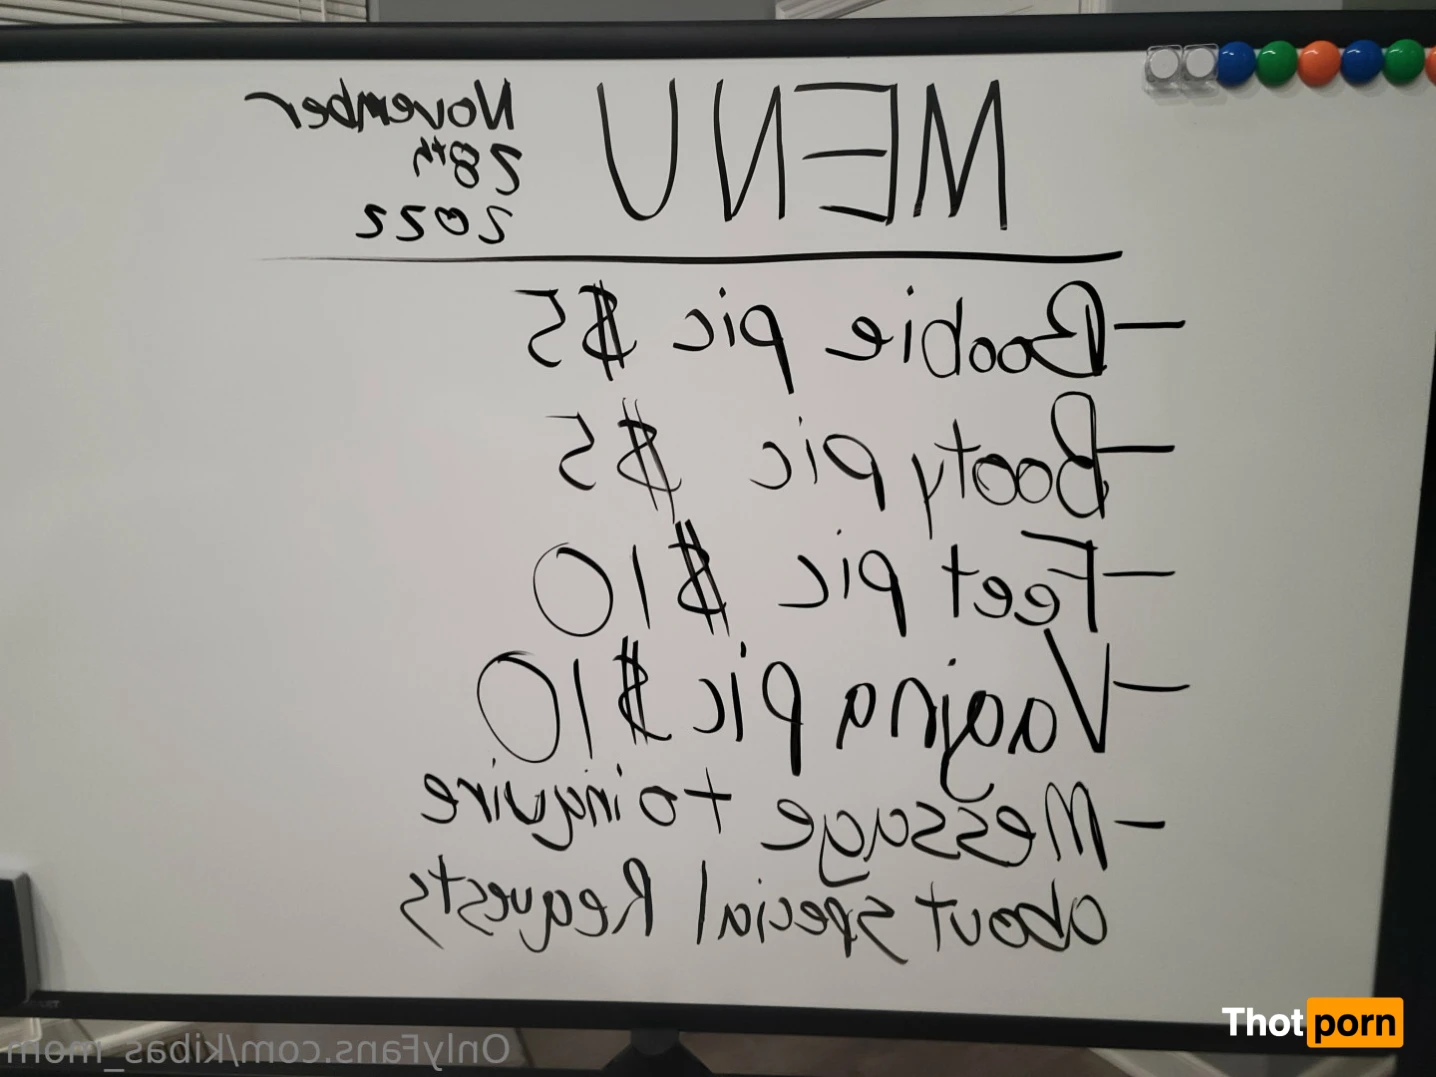 MENU
November
28th
2022
- Boobie pic $5
- Booty pic $5
- Feet pic $10
- Vagina pic $10
- Message to inquire
about special Requests
OnlyFans.com/kibas_mom
Thotporn